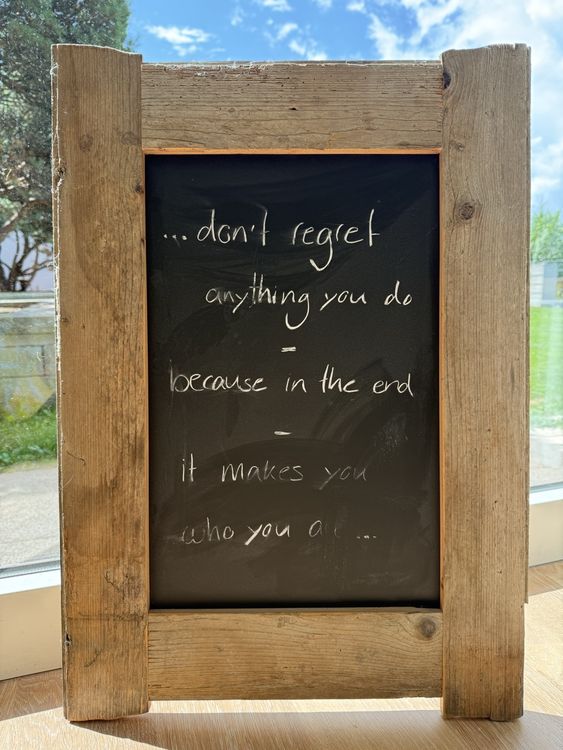 ...don't regret
anything you do
-
because in the end
-
it makes you
who you are...